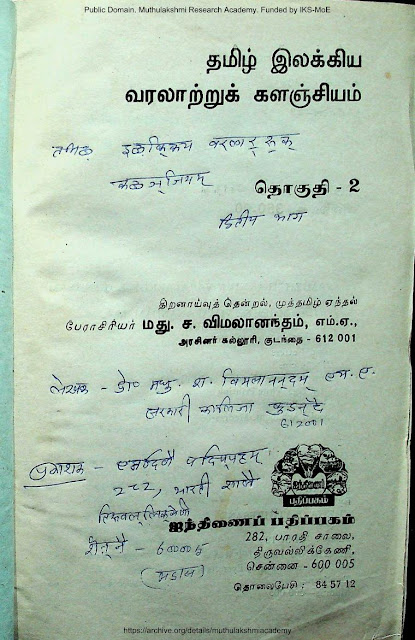 Public Domain. Muthulakshmi Research Academy. Funded by IKS-MoE
தமிழ் இலக்கிய
வரலாற்றுக் களஞ்சியம்
तमिळ् इळक्किय वरलाट्रुक्
कळञ्जियम्
தொகுதி - 2
द्वितीय भाग
திறனாய்வுத் தென்றல், முத்தமிழ் ஏந்தல்
பேராசிரியர் மது. ச. விமலானந்தம், எம்.ஏ.,
அரசினர் கல்லூரி, குடந்தை - 612 001
लेखक - डॉ० मधु. श. विमलानन्दम् एम. ए.
सरकारी कालिज कुडन्दै
612001
प्रकाशक - पदिप्पहम्
282, भारती शालै
ஐந்திணை
பதிப்பகம்
ஐந்திணைப் பதிப்பகம்
282, பாரதி சாலை,
திருவல்லிக்கேணி,
சென்னை - 600 005
चेन्नै - 600005
(मद्रास)
தொலைபேசி : 84 57 12
https://archive.org/details/muthulakshmiacademy